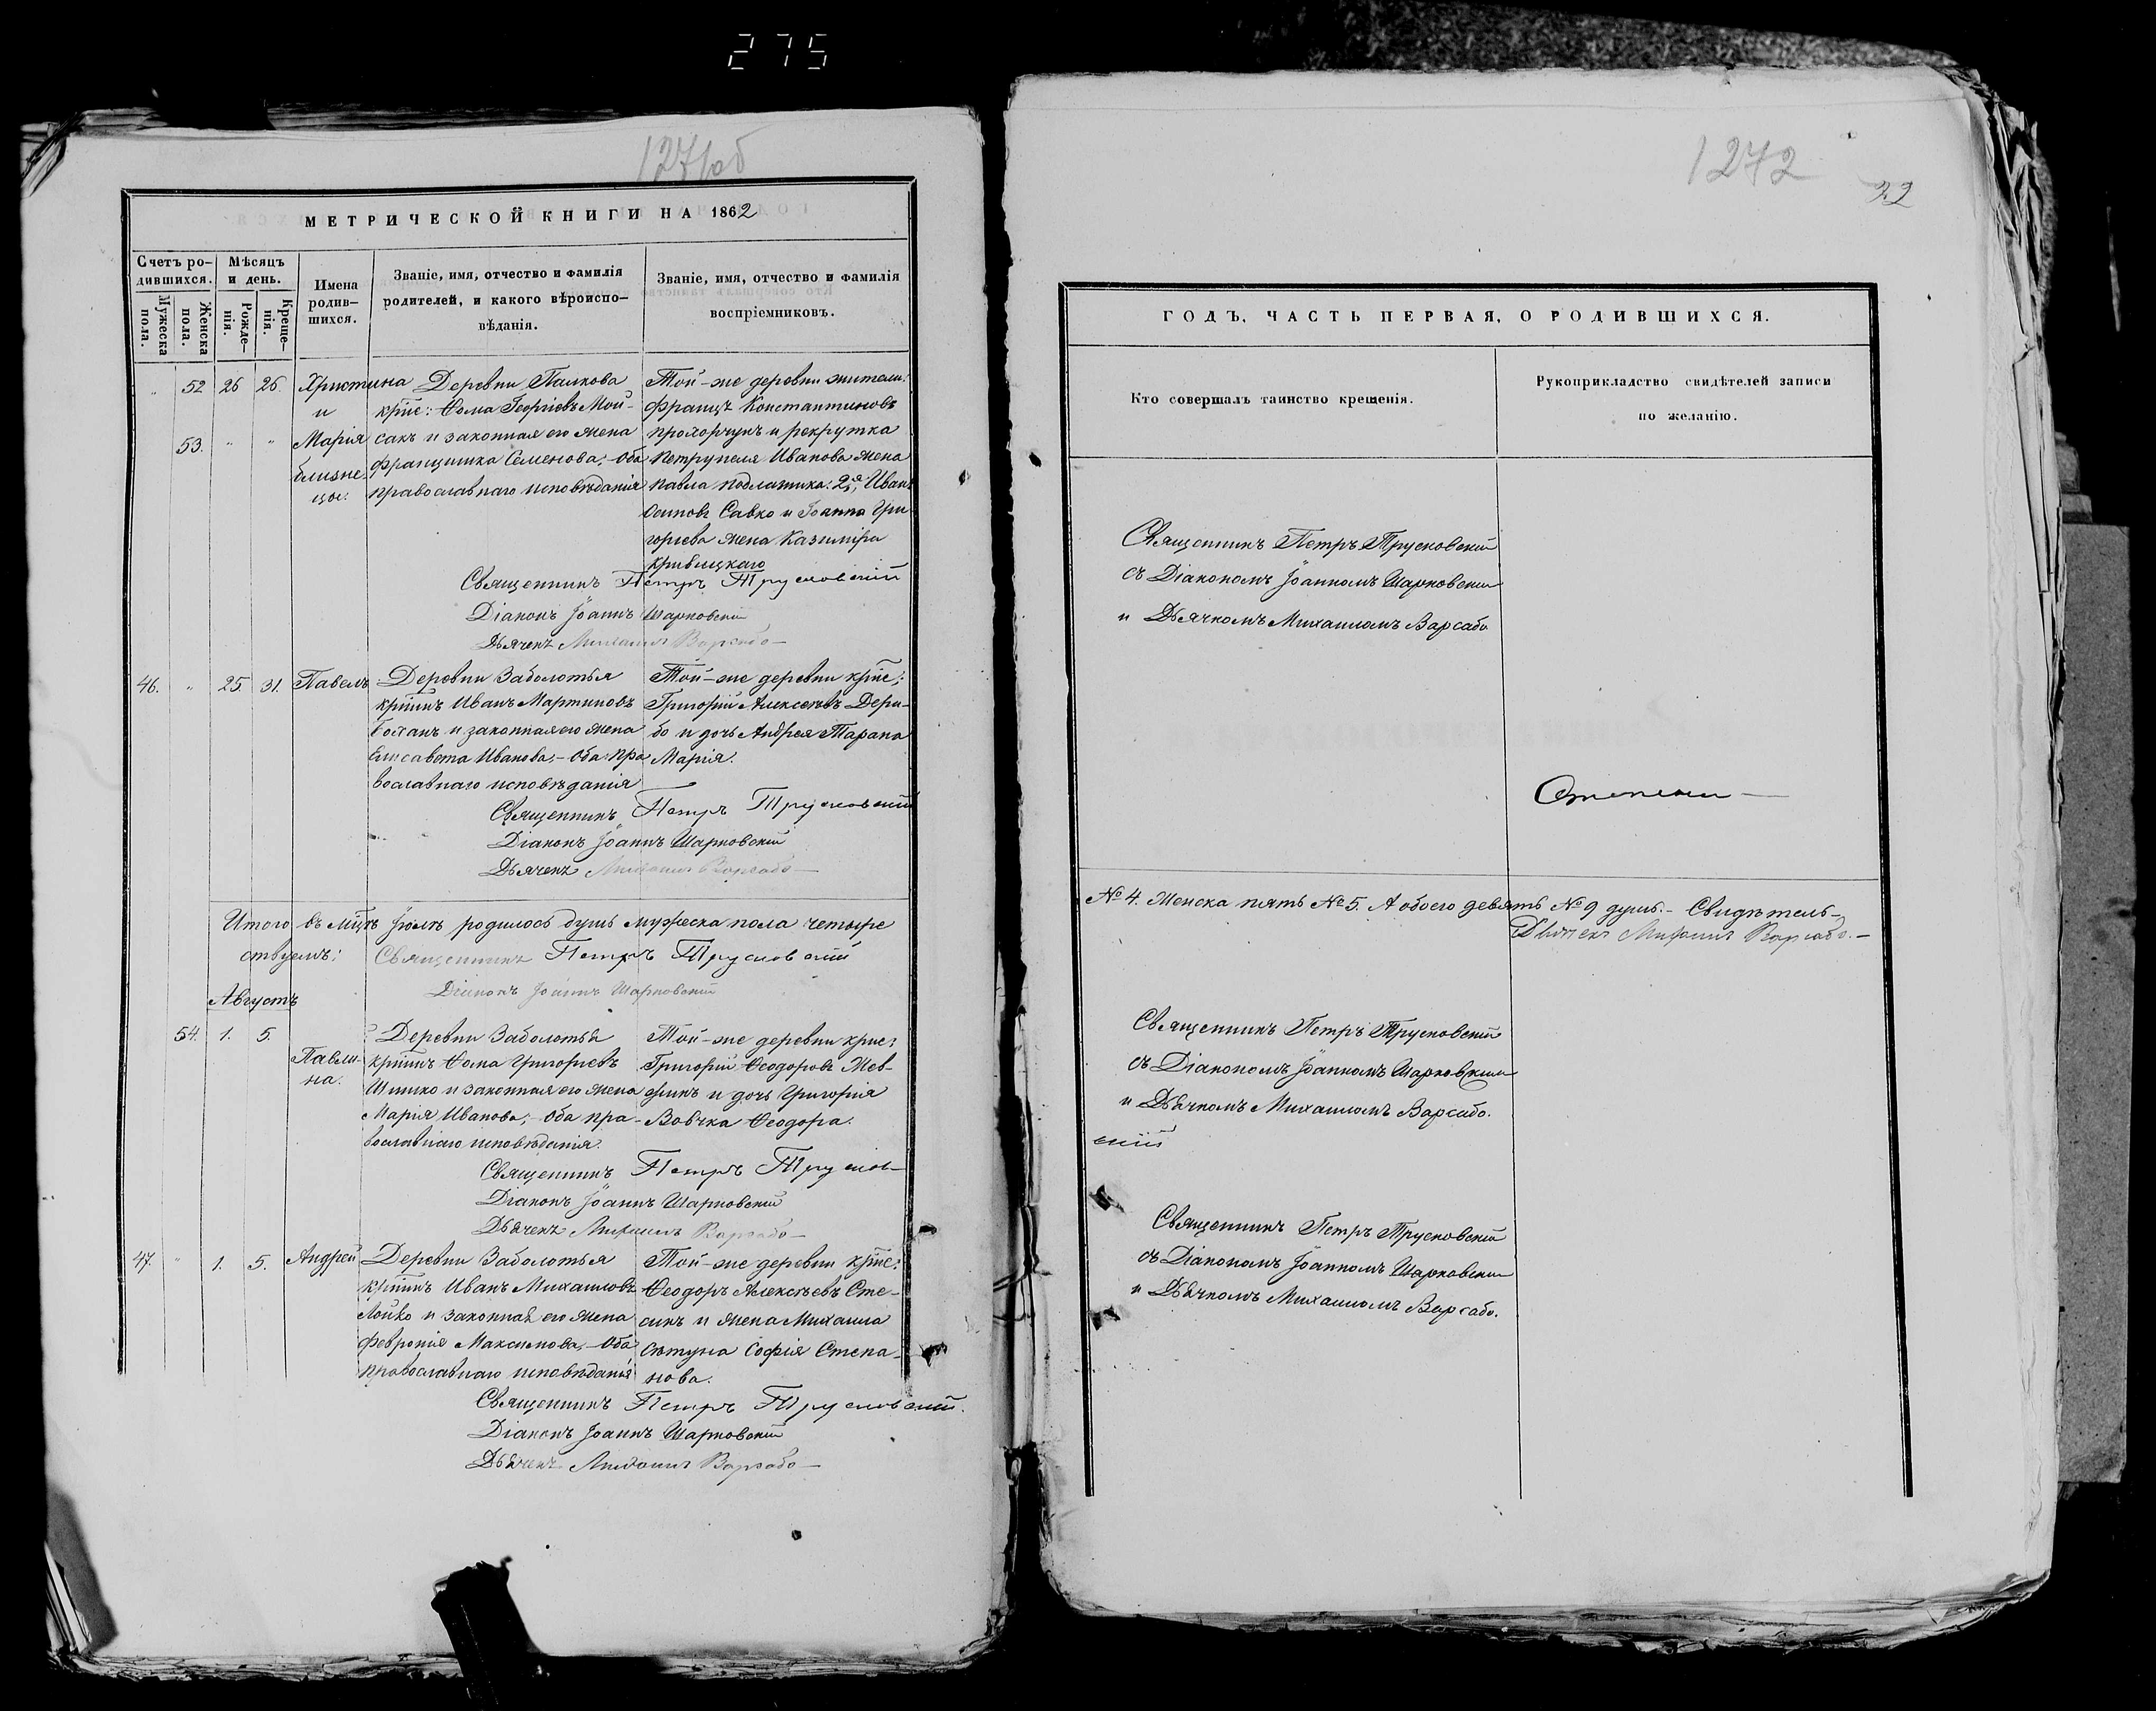 275
1271об
МЕТРИЧЕСКОЙ КНИГИ НА 1862
Счетъ ро-
дившихся.
Мужеска
пола.
Женска
пола.
Мѣсяцъ
и день.
Рожде-
нія.
Креще-
нія.
Имена
родив-
шихся.
Званіе, имя, отчество и фамилія
родителей, и какого вѣроиспо-
вѣданія.
Званіе, имя, отчество и фамилія
воспріемниковъ.
" 52 26 26.
53. " "
Христина
и
Марія
близне
цы.
Деревни Палкова
крт҃не: Ѳома Георгіевъ Мой-
сакъ и законная его жена
Францишка Семенова,- оба
православнаго исповѣданія
Той-же деревни жители:
Францъ Константиновъ
Прохорчукъ и рекрутка
Петрунеля Иванова жена
Павла 2я, Иванъ
Осиповъ Савко и Іоанна Гри
горьева жена Казиміра
Кривицкаго
Священникъ Петръ Трусковскій
Діаконъ Іоаннъ Шарковскій
Дьячекъ Михаилъ Варсабо-
46. " 25. 31. Павелъ
Деревни Заболотья
крт҃нинъ Иванъ Мартиновъ
и законная его жена
Елисавета Иванова,- оба пра
вославнаго исповѣданія
Той-же деревни крт҃не;
Григорій Алексѣевъ Дери-
бо и дочь Андрея Тарана
Марія.
Священникъ Петръ Трусковскій
Діаконъ Іоаннъ Шарковскій
Дьячекъ Михаилъ Варсабо-
Итого въ мц҃ѣ Іюлѣ родилось душъ мужеска пола четыре
ствуемъ:
Священникъ Петръ Трусковскій
Діаконъ Іоаннъ Шарковскій
Августъ
54. 1. 5.
Павли-
на.
Деревни Заболотья
крт҃нинъ Ѳома Григорьевъ
Шишко и законная его жена
Марія Иванова,- оба пра-
вославнаго исповѣданія.
Той-же деревни крт҃не:
Григорій Ѳеодоровъ Жев-
и дочь Григорія
Вовчка Ѳеодора.
Священникъ Петръ Трусков-
Діаконъ Іоаннъ Шарковскій
Дьячекъ Михаилъ Варсабо-
47. " 1. 5. Андрей
Деревни Заболотья
крт҃нинъ Иванъ Михаиловъ
Лойко и законная его жена
Февронія Максимова,- оба
православнаго исповѣданія
Той-же деревни крт҃не:
Ѳеодоръ Алексѣевъ Сте-
и жена Михаила
Софія Степа-
нова.
Священникъ Петръ Трусковскій.
Діаконъ Іоаннъ Шарковскій
Дьячекъ Михаилъ Варсабо-
1272
32
ГОДЪ, ЧАСТЬ ПЕРВАЯ, О РОДИВШИХСЯ.
Кто совершалъ таинство крещенія.
Рукоприкладство свидѣтелей записи
по желанію.
Священникъ Петръ Трусковскій
съ Діакономъ Іоанномъ Шарковскимъ
и Дьячкомъ Михаиломъ Варсабо
№ 4. Женска пять № 5. А обоего девять № 9 душъ.- Свидѣтель-
Дьячекъ Михаилъ Варсабо.-
Священникъ Петръ Трусковскій
съ Діакономъ Іоанномъ Шарковскимъ
и Дьячкомъ Михаиломъ Варсабо.
скій
Священникъ Петръ Трусковскій
съ Діакономъ Іоанномъ Шарковскимъ
и Дьячкомъ Михаиломъ Варсабо.